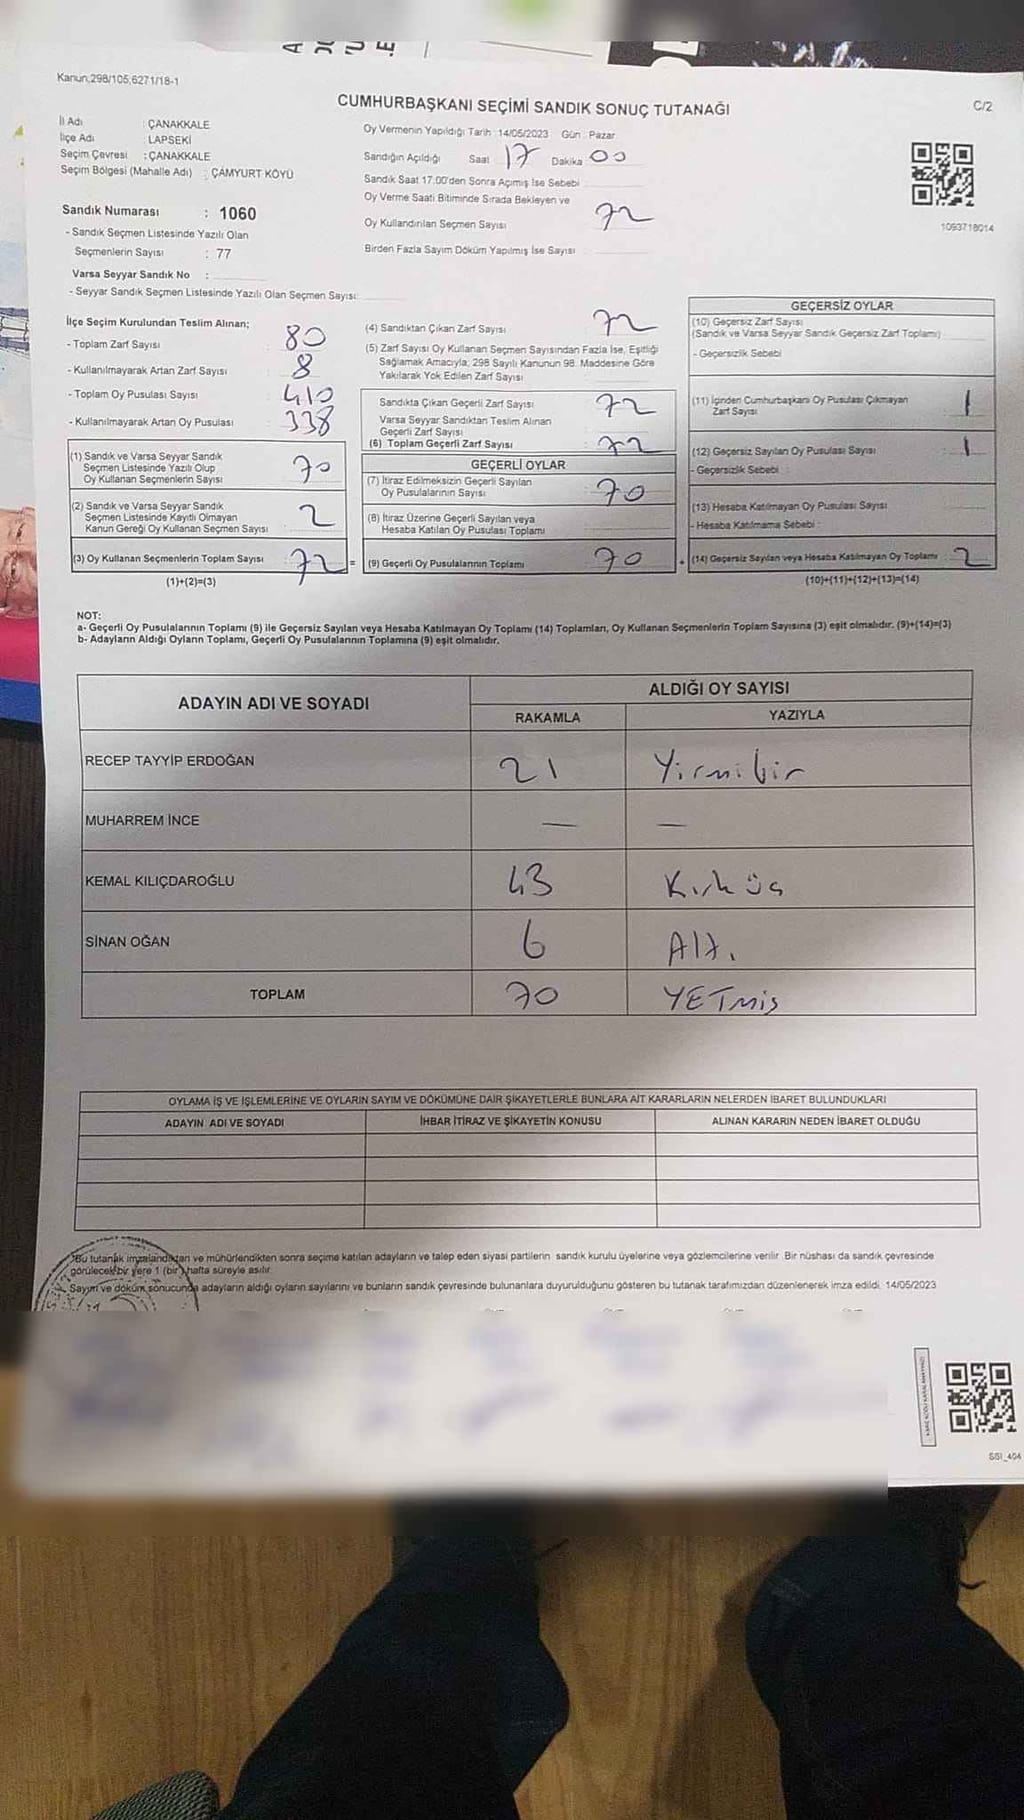 Kanun,298/105;6271/18-1
CUMHURBAŞKANI SEÇİMİ SANDIK SONUÇ TUTANAĞI
C/2
İl Adı : ÇANAKKALE
İlçe Adı : LAPSEKİ
Seçim Çevresi : ÇANAKKALE
Seçim Bölgesi (Mahalle Adı) : ÇAMYURT KÖYÜ
Sandık Numarası : 1060
- Sandık Seçmen Listesinde Yazılı Olan
Seçmenlerin Sayısı : 77
Varsa Seyyar Sandık No :
- Seyyar Sandık Seçmen Listesinde Yazılı Olan Seçmen Sayısı:
Oy Vermenin Yapıldığı Tarih : 14/05/2023 Gün : Pazar
Sandığın Açıldığı Saat 17 Dakika 00
Sandık Saat 17:00'den Sonra Açımış İse Sebebi
Oy Verme Saati Bitiminde Sırada Bekleyen ve
Oy Kullandırılan Seçmen Sayısı 72
Birden Fazla Sayım Döküm Yapılmış İse Sayısı
1093718014
İlçe Seçim Kurulundan Teslim Alınan;
- Toplam Zarf Sayısı 80
- Kullanılmayarak Artan Zarf Sayısı 8
- Toplam Oy Pusulası Sayısı 410
- Kullanılmayarak Artan Oy Pusulası 338
(1) Sandık ve Varsa Seyyar Sandık
Seçmen Listesinde Yazılı Olup
Oy Kullanan Seçmenlerin Sayısı 70
(2) Sandık ve Varsa Seyyar Sandık
Seçmen Listesinde Kayıtlı Olmayan
Kanun Gereği Oy Kullanan Seçmen Sayısı 2
(3) Oy Kullanan Seçmenlerin Toplam Sayısı 72 =
(1)+(2)=(3)
(4) Sandıktan Çıkan Zarf Sayısı 72
(5) Zarf Sayısı Oy Kullanan Seçmen Sayısından Fazla İse, Eşitliği
Sağlamak Amacıyla, 298 Sayılı Kanunun 98. Maddesine Göre
Yakılarak Yok Edilen Zarf Sayısı
Sandıkta Çıkan Geçerli Zarf Sayısı 72
Varsa Seyyar Sandıktan Teslim Alınan
Geçerli Zarf Sayısı
(6) Toplam Geçerli Zarf Sayısı 72
GEÇERLİ OYLAR
(7) İtiraz Edilmeksizin Geçerli Sayılan
Oy Pusulalarının Sayısı 70
(8) İtiraz Üzerine Geçerli Sayılan veya
Hesaba Katılan Oy Pusulası Toplamı
(9) Geçerli Oy Pusulalarının Toplamı 70 +
GEÇERSİZ OYLAR
(10) Geçersiz Zarf Sayısı
(Sandık ve Varsa Seyyar Sandık Geçersiz Zarf Toplamı)
- Geçersizlik Sebebi
(11) İçinden Cumhurbaşkanı Oy Pusulası Çıkmayan
Zarf Sayısı 1
(12) Geçersiz Sayılan Oy Pusulası Sayısı 1
- Geçersizlik Sebebi :
(13) Hesaba Katılmayan Oy Pusulası Sayısı
- Hesaba Katılmama Sebebi :
(14) Geçersiz Sayılan veya Hesaba Katılmayan Oy Toplamı 2
(10)+(11)+(12)+(13)=(14)
NOT:
a- Geçerli Oy Pusulalarının Toplamı (9) ile Geçersiz Sayılan veya Hesaba Katılmayan Oy Toplamı (14) Toplamları, Oy Kullanan Seçmenlerin Toplam Sayısına (3) eşit olmalıdır. (9)+(14)=(3)
b- Adayların Aldığı Oyların Toplamı, Geçerli Oy Pusulalarının Toplamına (9) eşit olmalıdır.
ADAYIN ADI VE SOYADI ALDIĞI OY SAYISI
RAKAMLA YAZIYLA
RECEP TAYYİP ERDOĞAN 21 Yirmibir
MUHARREM İNCE — —
KEMAL KILIÇDAROĞLU 43 Kırküç
SİNAN OĞAN 6 Altı
TOPLAM 70 YETmiş
OYLAMA İŞ VE İŞLEMLERİNE VE OYLARIN SAYIM VE DÖKÜMÜNE DAİR ŞİKAYETLERLE BUNLARA AİT KARARLARIN NELERDEN İBARET BULUNDUKLARI
ADAYIN ADI VE SOYADI İHBAR İTİRAZ VE ŞİKAYETİN KONUSU ALINAN KARARIN NEDEN İBARET OLDUĞU
Bu tutanak imzalandıktan ve mühürlendikten sonra seçime katılan adayların ve talep eden siyasi partilerin sandık kurulu üyelerine veya gözlemcilerine verilir. Bir nüshası da sandık çevresinde
görülecek bir yere 1 (bir) hafta süreyle asılır.
Sayım ve döküm sonucunda adayların aldığı oyların sayılarını ve bunların sandık çevresinde bulunanlara duyurulduğunu gösteren bu tutanak tarafımızdan düzenlenerek imza edildi. 14/05/2023